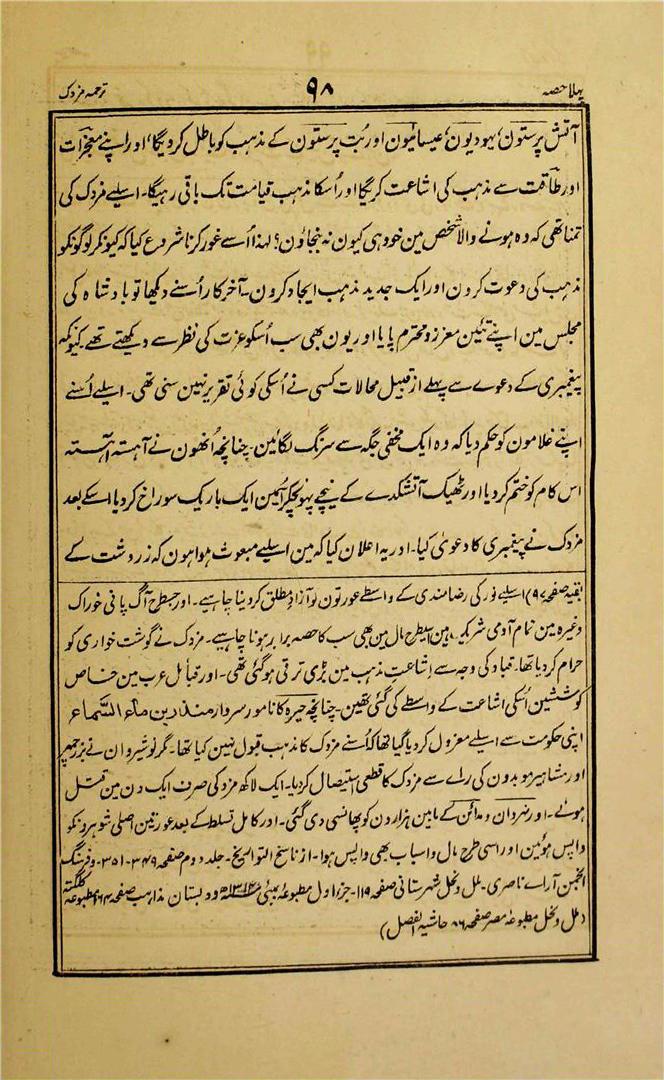 پہلا حصہ
۹۸
ترجمہ مزدک
آتش پرستون، یہودیون، عیسائیون اور بُت پرستون کے مذہب کو باطل کر دیگا، اور اپنے معجزات
اور طاقت سے مذہب کی اشاعت کریگا اور اُسکا مذہب قیامت تک باقی رہیگا۔ اسلیے مزدک کی
تمنا تھی کہ وہ ہونے والا شخص مین خود ہی کیون نہ بنجاؤن؟ لہذا اُسنے غور کرنا شروع کیا کہ کیونکر لوگونکو
مذہب کی دعوت کرون اور ایک جدید مذہب ایجاد کرون۔ آخر کار اُسنے دیکھا تو بادشاہ کی
مجلس مین اپنے تئین معزز و محترم پایا اور یون بھی سب اُسکو عزت کی نظر سے دیکھتے تھے۔ کیونکہ
پیغمبری کے دعوے سے پہلے از قبیل محالات کسی نے اُسکی کوئی تقریر نہین سنی تھی۔ اسلیے اُسنے
اپنے غلامون کو حکم دیا کہ وہ ایک مخفی جگہ سے سرنگ لگائین۔ چنانچہ اُنھون نے آہستہ آہستہ
اس کام کو ختم کر دیا اور ٹھیک آتشکدے کے نیچے پہونچکر اُسمین ایک باریک سوراخ کر دیا اسکے بعد
مزدک نے پیغمبری کا دعویٰ کیا۔ اور یہ اعلان کیا کہ مین اسلیے مبعوث ہوا ہون کہ زردشت کے
(بقیہ صفحہ ۹۷) اسلیے نور کی رضامندی کے واسطے عورتون کو آزاد مطلق کر دینا چاہیے۔ اور جسطرح آگ پانی خوراک
وغیرہ مین تمام آدمی شریک ہین اسیطرح مال مین بھی سب کا حصہ برابر ہونا چاہیے۔ مزدک نے گوشت خواری کو
حرام کر دیا تھا۔ قباد کی وجہ سے اشاعت مذہب مین بڑی ترقی ہو گئی تھی۔ اور قبائل عرب مین خاص
کوششین اُسکی اشاعت کے واسطے کی گئی تھین۔ چنانچہ حیرہ کا نامور سردار منذر بن ماء السَّماء
اپنی حکومت سے اسلیے معزول کر دیا گیا تھا کہ اُسنے مزدک کا مذہب قبول نہین کیا تھا۔ مگر نوشیروان نے بزرجمہر
اور مشاہیر موبدون کی راے سے مزدک کا قطعی استیصال کر دیا۔ ایک لاکھ مزدکی صرف ایک دن مین قتل
ہوئے۔ اور نہروان و مدائن کے مابین ہزارون کو پھانسی دی گئی۔ اور کامل تسلط کے بعد عورتین اصلی شوہرونکو
واپس ہوئین اور اسی طرح مال و اسباب بھی واپس ہوا۔ از ناسخ التواریخ۔ جلد دوم صفحہ ۳۴۹۔۳۵۱۔ و فرہنگ
انجمن آراے ناصری۔ ملل و نحل شہرستانی صفحہ ۱۱۹۔ جزء اول مطبوعہ بمبئی ۱۳۱۴ھ و دبستان مذاہب صفحہ ۱۶۴ مطبوعہ کلکتہ
(ملل و نحل مطبوعہ مصر صفحہ ۸۶ حاشیہ الفصل)